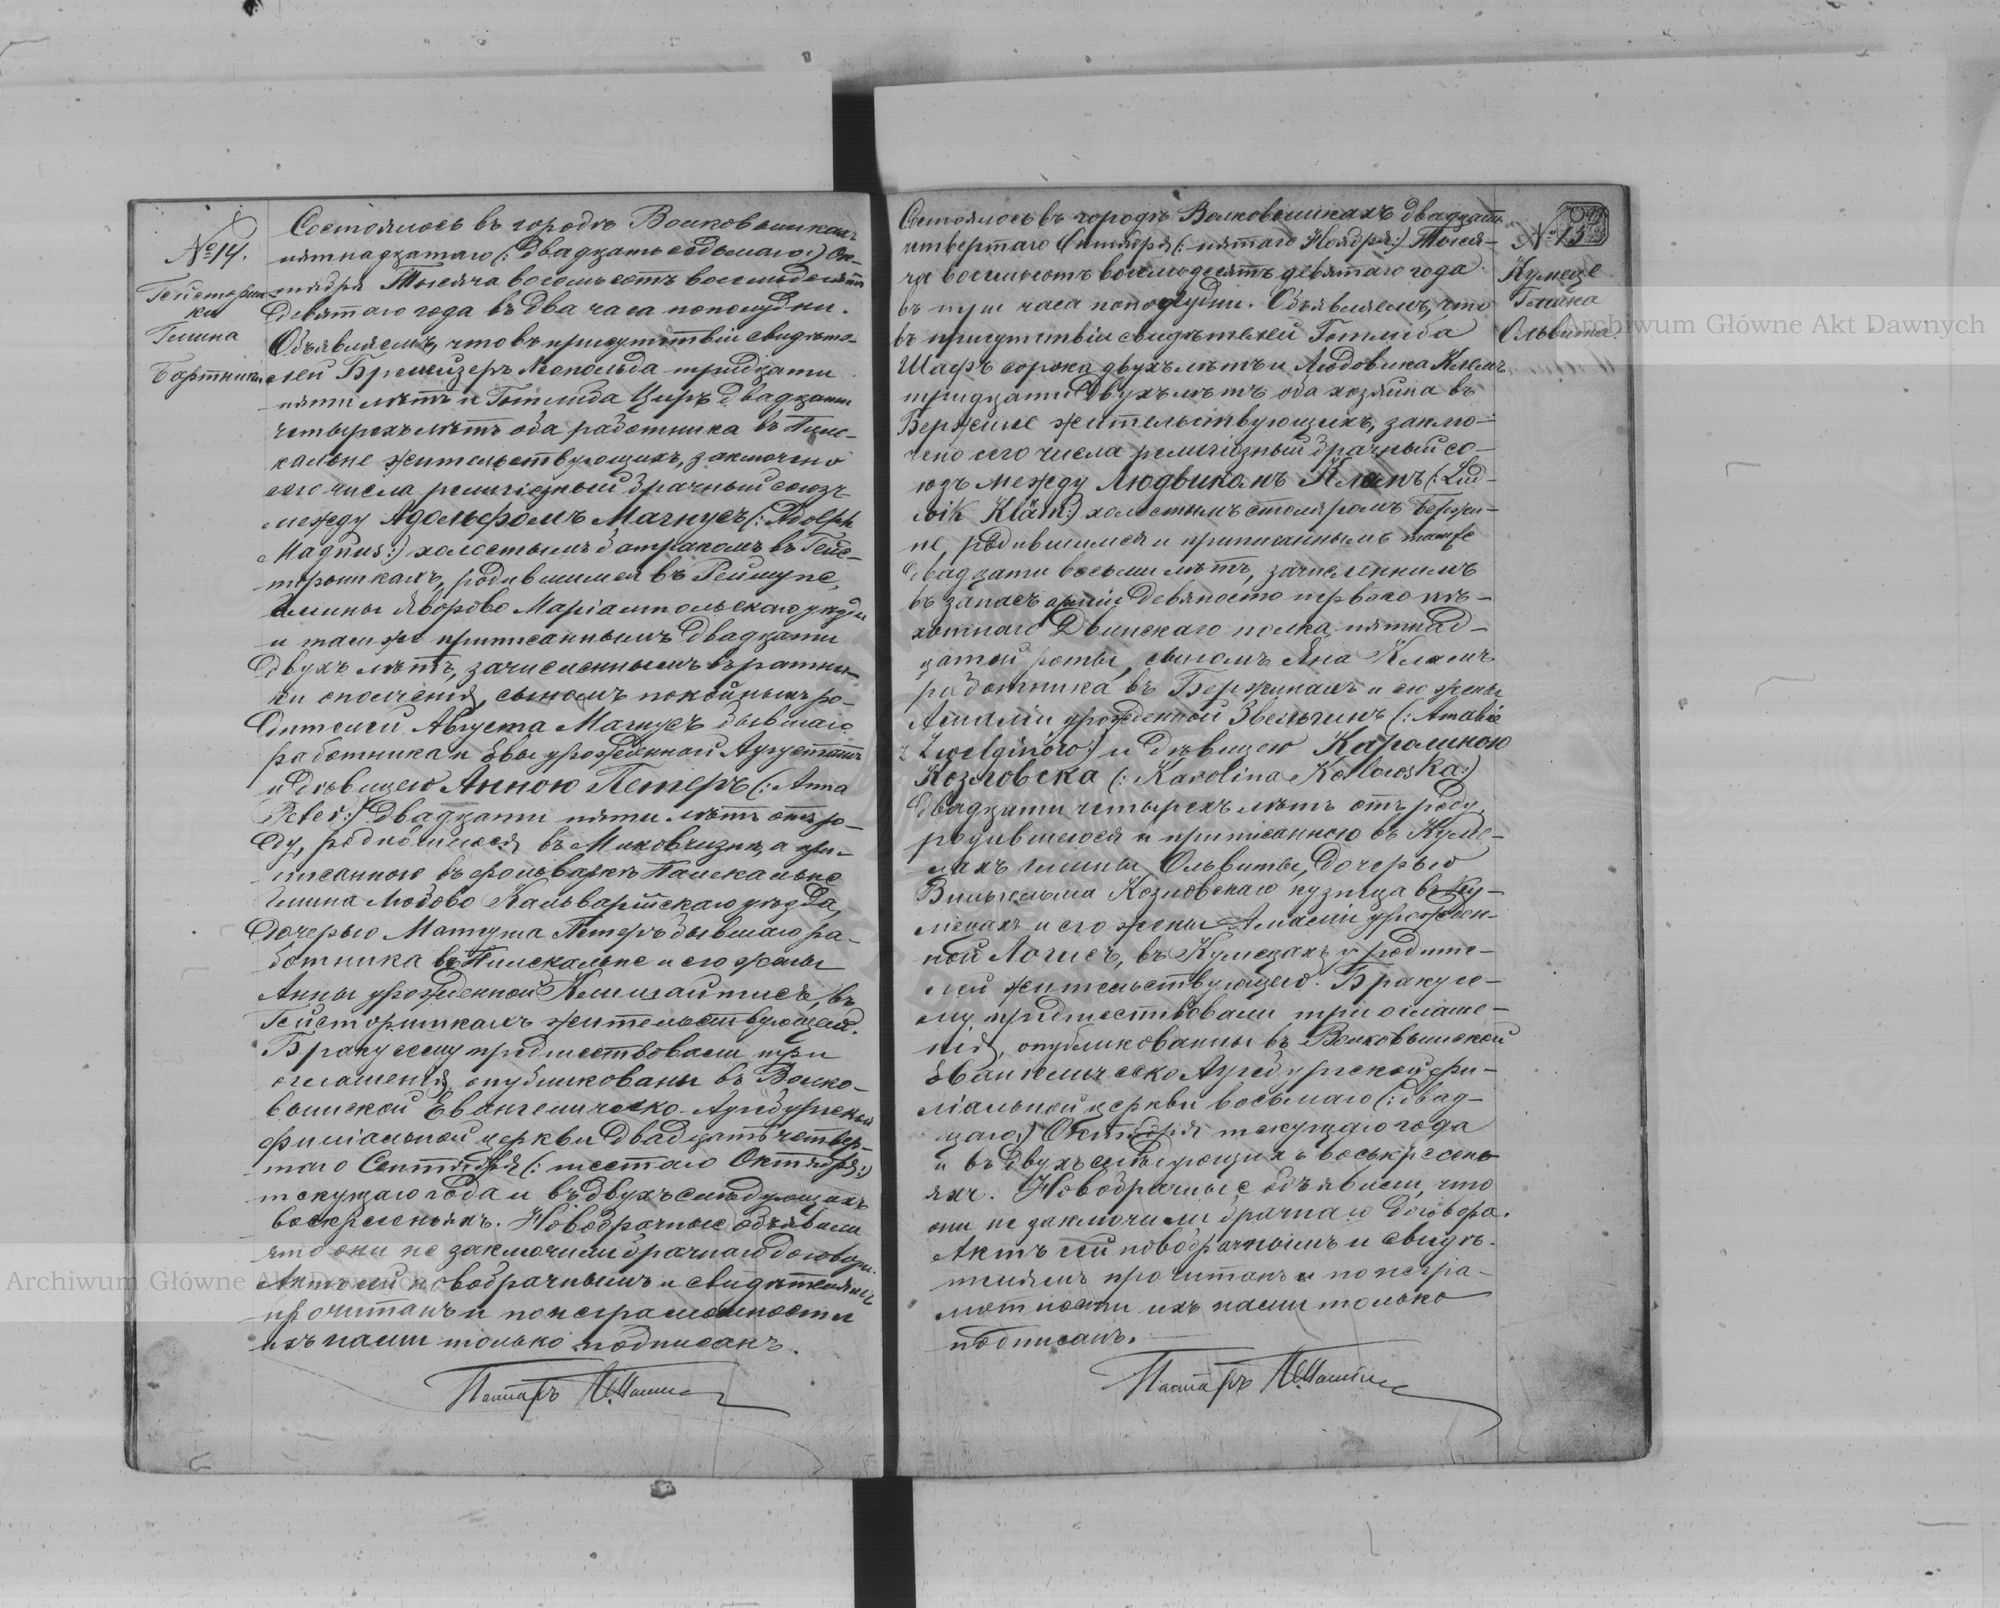 № 14.
Гейсториш-
ки
Гмина
Бартники
Состоялось въ городѣ Волковышкахъ
пятнадцатаго (: двадцать седьмаго:) Ок-
тября Тысяча восемьсотъ восемьдесятъ
девятаго года въ два часа пополудни.
Объявляемъ, что въ присутствіи свидѣте-
лей Бремейзеръ Леопольда тридцати
пяти лѣтъ и Готлиба Циръ двадцати
четырехъ лѣтъ оба работника въ Пиле-
кальне жительствующихъ, заключено
сего числа религіозный брачный союзъ
между Адольфомъ Магнусъ (: Adolph
Magnus:) холостымъ батракомъ въ Гейс-
торишкахъ, родившимся въ
гмины Яворово Маріампольскаго уѣзда
и тамъ же приписаннымъ двадцати
двухъ лѣтъ, зачисленнымъ въ ратни-
ки ополченія, сыномъ покойныхъ ро-
дителей Августа Магнусъ бывшаго
работника и Евы урожденной
и дѣвицею Анною Петеръ (: Anna
Peter:) двадцати пяти лѣтъ отъ ро-
ду, родившеюся въ а при-
писанною въ фольваркѣ
Гмина Любово Кальварійскаго уѣзда,
дочерью Матуша Петеръ бывшаго ра-
ботника въ Пилекальне и его жены
Анны урожденной въ
Гейсторишкахъ жительствующею.
Браку сему предшествовали три
оглашенія, опубликованы въ Волко-
вышской Евангелическо-Аугсбургской
филіальной церкви двадцать четвер-
таго Сентября (: шестаго Октября:)
текущаго года и въ двухъ слѣдующихъ
воскресеньяхъ. Новобрачные объявили
что они не заключили брачнаго договора.
Актъ сей новобрачнымъ и свидѣтелямъ
прочитанъ и по неграмотности
ихъ нами только подписанъ.
Пасторъ
№ 15
Кумеце
Гмина
Ольвита.
Состоялось въ городѣ Волковышкахъ двадцать
четвертаго Октября (: пятаго Ноября:) Тыся-
ча восемьсотъ восемьдесятъ девятаго года
въ три часа пополудни. Объявляемъ, что
въ присутствіи свидѣтелей Готлиба
Шафъ сорока двухъ лѣтъ и Людовика Клемъ
тридцати двухъ лѣтъ оба хозяина въ
Бержине жительствующихъ, заклю-
чено сего числа религіозный брачный со-
юзъ между Людвикомъ Клемъ (: Lud-
wik Kläm:) холостымъ столяромъ Бержи-
не, родившимся и приписаннымъ тамже
двадцати восьми лѣтъ, зачисленнымъ
въ запасъ арміи девяносто перваго пѣ-
хотнаго Двинскаго полка пятнад-
цатой роты, сыномъ Яна Клемъ
работника въ Бержинахъ и его жены
Амаліи урожденной Звельгинъ (: Amalie
z Zwelginów:) и дѣвицею Каролиною
Козловска (: Karolina Kozlowska:)
двадцати четырехъ лѣтъ отъ роду,
родившеюся и приписанною въ Куме-
цахъ гмины Ольвиты, дочерью
Вильгельма Козловскаго кузнеца въ Ку-
мецахъ и его жены Амаліи урожден-
ной въ Кумецахъ у родите-
лей жительствующею. Браку се-
му предшествовали три оглаше-
нія, опубликованны въ Волковышской
Евангелическо Аугсбургской фи-
ліальной церкви восьмаго (: двад-
цаго:) Октября текущаго года
и въ двухъ слѣдующихъ воскресень-
яхъ. Новобрачные объявили, что
они не заключили брачнаго договора.
Актъ сей новобрачнымъ и свидѣ-
телямъ прочитанъ и по негра-
мотности ихъ нами только
подписанъ.
Пасторъ
Archiwum Główne Akt Dawnych
Archiwum Główne Akt Dawnych